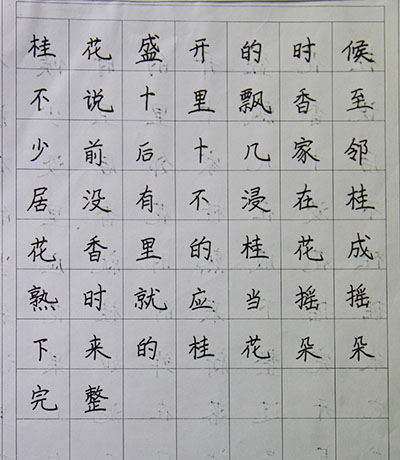 桂花盛开的时候
不说十里飘香至
少前后十几家邻
居没有不浸在桂
花香里的桂花成
熟时就应当摇摇
下来的桂花朵朵
完整